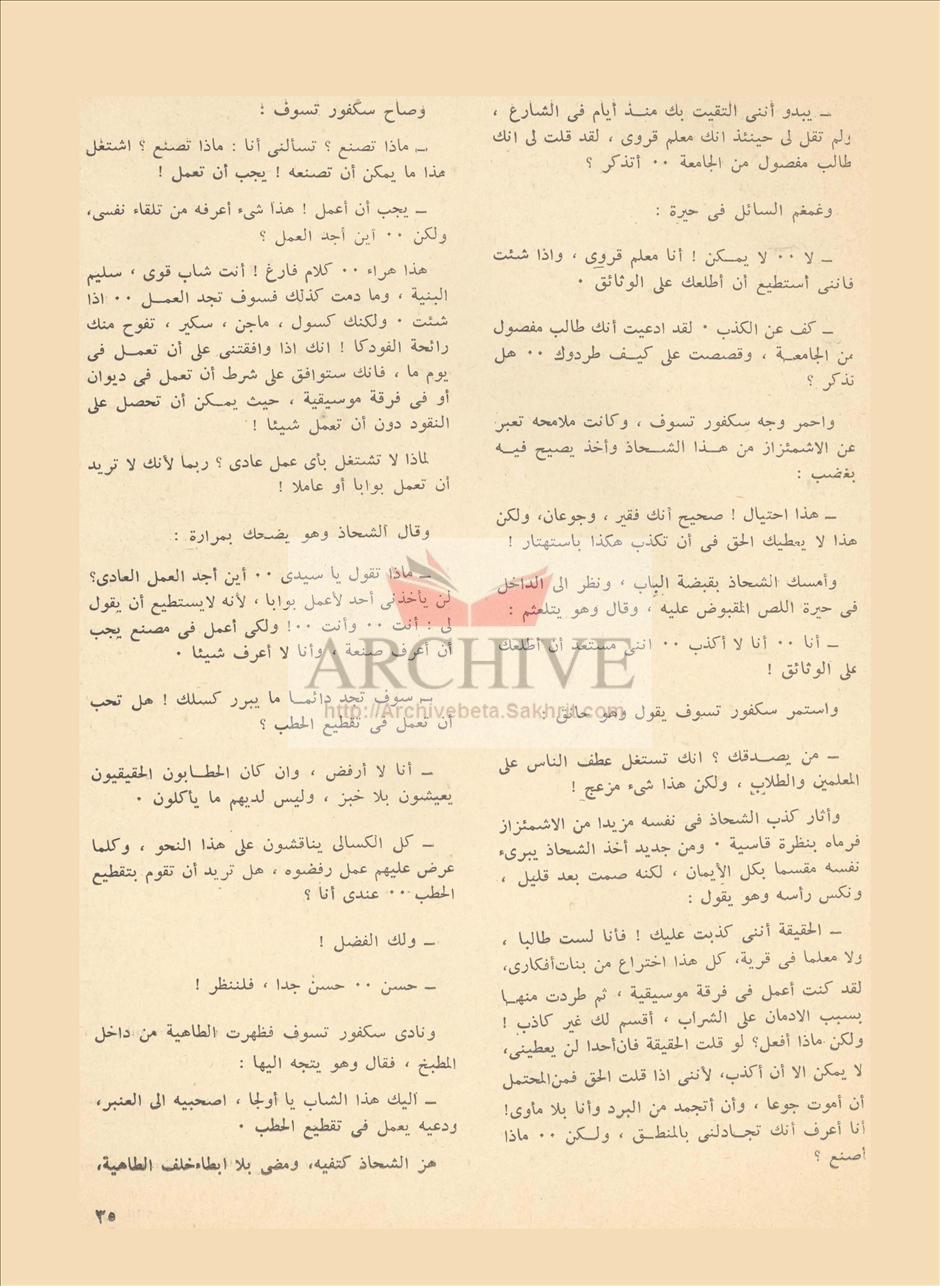 ـ يبدو أننى التقيت بك منـذ أيام فى الشارع ،
ولم تقل لى حينئذ انك معلم قروى ، لقد قلت لى انك
طالب مفصول من الجامعة ٠٠ أتذكر ؟
وغمغم السائل فى حيرة :
ـ لا ٠٠ لا يمـكن ! أنا معلم قروى ، واذا شئت
فاننى أستطيع أن أطلعك على الوثائق ٠
ـ كف عن الكذب ٠ لقد ادعيت أنك طالب مفصول
من الجامعـة ، وقصصت على كيـف طردوك ٠٠ هل
تذكر ؟
واحمر وجه سكفور تسوف ، وكانت ملامحه تعبر
عن الاشمئزاز من هـذا الشـحاذ وأخذ يصيح فيـه
بغضب :
ـ هذا احتيال ! صحيح أنك فقير ، وجوعان، ولكن
هذا لا يعطيك الحق فى أن تكذب هكذا باستهتار !
وأمسك الشحاذ بقبضة الباب ، ونظر الى الداخل
فى حيرة اللص المقبوض عليه ، وقال وهو يتلعثم :
ـ أنا ٠٠ أنا لا أكذب ٠٠ اننى مستعد أن أطلعك
على الوثائق !
واستمر سكفور تسوف يقول وهو حانق :
ـ من يصـدقك ؟ انك تستغل عطف الناس على
المعلمين والطلاب ، ولكن هذا شىء مزعج !
وأثار كذب الشحاذ فى نفسه مزيدا من الاشمئزاز
فرماه بنظرة قاسية ٠ ومن جديد أخذ الشحاذ يبرىء
نفسه مقسما بكل الأيمان ، لكنه صمت بعد قليل ،
ونكس رأسه وهو يقول :
ـ الحقيقة أننى كذبت عليك ! فأنا لست طالبا ،
ولا معلما فى قرية، كل هذا اختراع من بنات أفكارى،
لقد كنت أعمل فى فرقة موسيقية ، ثم طردت منهـا
بسبب الادمان على الشراب ، أقسم لك غير كاذب !
ولكن ماذا أفعل؟ لو قلت الحقيقة فان أحدا لن يعطينى،
لا يمكن الا أن أكذب، لأننى اذا قلت الحق فمن المحتمل
أن أموت جوعا ، وأن أتجمد من البرد وأنا بلا مأوى!
أنا أعرف أنك تجـادلنى بالمنطـق ، ولـكن ٠٠ ماذا
أصنع ؟
وصاح سكفور تسوف :
ـ ماذا تصنع ؟ تسألنى أنا : ماذا تصنع ؟ اشتغل
هذا ما يمكن أن تصنعه ! يجب أن تعمل !
ـ يجب أن أعمل ! هذا شىء أعرفه من تلقاء نفسى،
ولكن ٠٠ أين أجد العمل ؟
هذا هراء ٠٠ كلام فارغ ! أنت شاب قوى ، سليم
البنية ، وما دمت كذلك فسوف تجد العمـل ٠٠ اذا
شئت ٠ ولكنك كسول ، ماجن ، سكير ، تفوح منك
رائحة الفودكا ! انك اذا وافقتنى على أن تعمـل فى
يوم ما ، فانك ستوافق على شرط أن تعمل فى ديوان
أو فى فرقة موسيقية ، حيث يمـكن أن تحصل على
النقود دون أن تعمل شيئا !
لماذا لا تشتغل بأى عمل عادى ؟ ربما لأنك لا تريد
أن تعمل بوابا أو عاملا !
وقال الشحاذ وهو يضحك بمرارة :
ـ ماذا تقول يا سيدى ٠٠ أين أجد العمل العادى؟
لن يأخذنى أحد لأعمل بوابا ، لأنه لايستطيع أن يقول
لى : أنت ٠٠ وأنت ٠٠! ولكى أعمل فى مصنع يجب
أن أعرف صنعة ، وأنا لا أعرف شيئا ٠
ـ سوف تجد دائمـا ما يبرر كسلك ! هل تحب
أن تعمل فى تقطيع الحطب ؟
ـ أنا لا أرفض ، وان كان الحطـابون الحقيقيون
يعيشون بلا خبز ، وليس لديهم ما يأكلون ٠
ـ كل الكسالى يناقشون على هذا النحو ، وكلما
عرض عليهم عمل رفضوه ، هل تريد أن تقوم بتقطيع
الحطب ٠٠ عندى أنا ؟
ـ ولك الفضل !
ـ حسن ٠٠ حسن جدا ، فلننظر !
ونادى سكفور تسوف فظهرت الطاهية من داخل
المطبخ ، فقال وهو يتجه اليها :
ـ اليك هذا الشاب يا أولجا ، اصحبيه الى العنبر،
ودعيه يعمل فى تقطيع الحطب ٠
هز الشحاذ كتفيه، ومضى بلا ابطاء خلف الطاهية،
٣٥
ARCHIVE
http://Archivebeta.Sakhrit.com